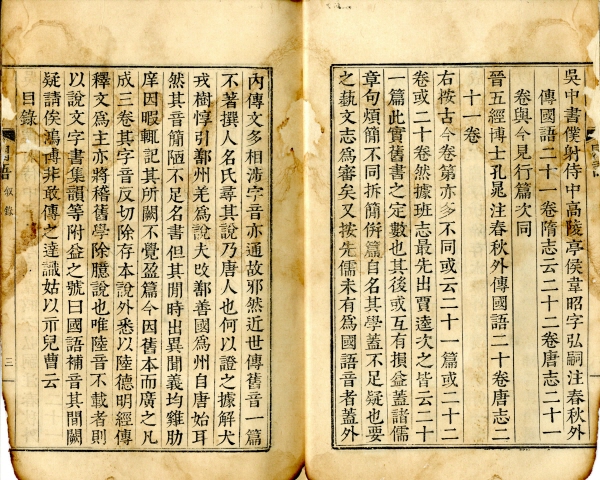 吳中書僕射侍中高陵亭侯韋昭字弘嗣注春秋外
傳國語二十一卷隋志云二十二卷唐志二十一
卷與今見行篇次同
晉五經博士孔晁注春秋外傳國語二十卷唐志二
十一卷
右按古今卷第亦多不同或云二十一篇或二十二
卷或二十卷然據班志最先出賈逵次之皆云二十
一篇此實舊書之定數也其後或互有損益蓋諸儒
章句煩簡不同拆簡併篇自名其學蓋不足疑也要
之蓺文志為審矣又按先儒未有為國語音者蓋外
內傳文多相涉字音亦通故邪然近世傳舊音一篇
不著撰人名氏尋其說乃唐人也何以證之據解犬
戎樹惇引鄯州羌為說夫攺鄯善國為州自唐始耳
然其音簡陋不足名書但其閒時出異聞義均雞肋
庠因暇輒記其所闕不覺盈篇今因舊本而廣之凡
成三卷其字音反切除存本說外悉以陸德明經傳
釋文為主亦將稽舊學除臆說也唯陸音不載者則
以說文字書集韻等附益之號曰國語補音其閒闕
疑請俟鴻博非敢傳之達識姑以示兒曹云
目錄
叙錄
三